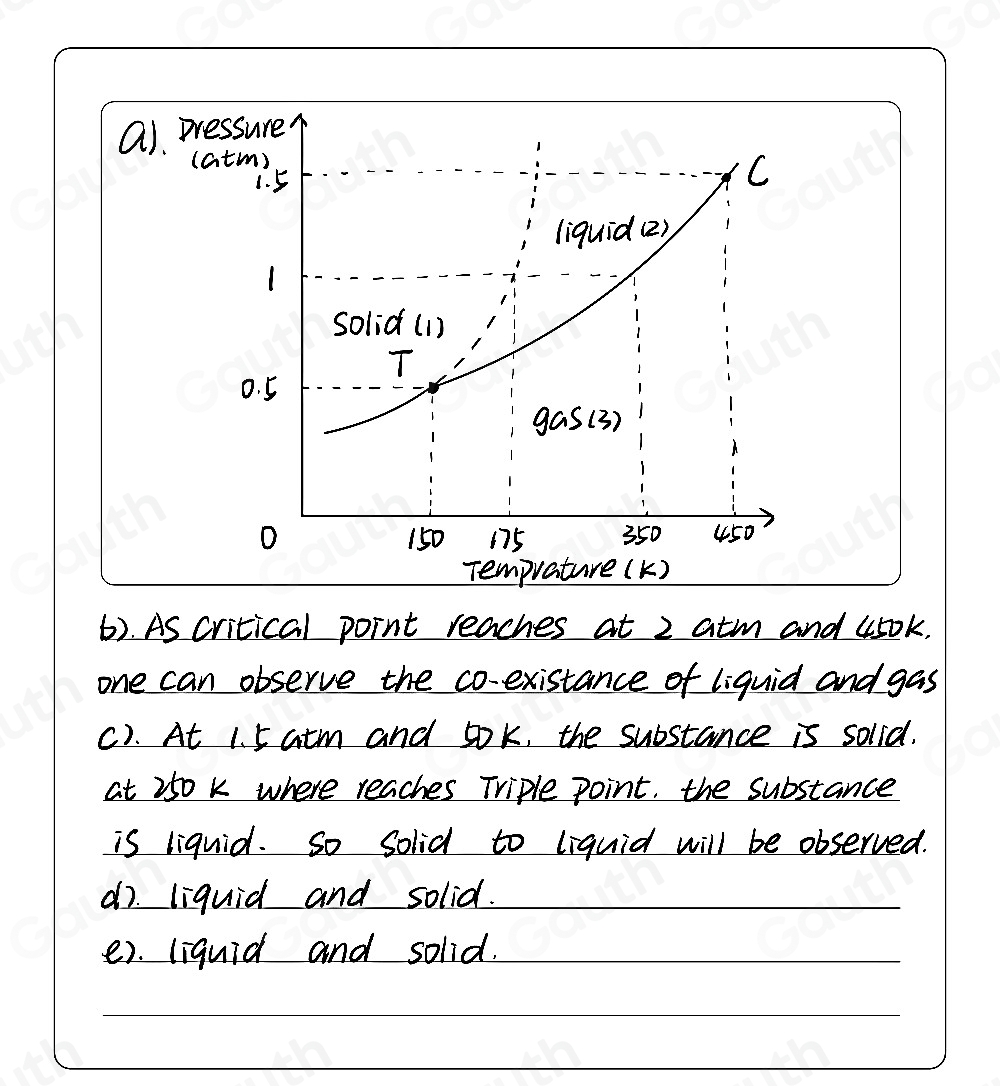 a). Pressure
(atm)
1.5
C
liquid (2)
1
solid (1)
T
0.5
gas (3)
0
150 175 350 450
Temprature (K)
b). As critical point reaches at 2 atm and 450K,
one can observe the co-existance of liquid and gas
c). At 1.5 atm and 50 K, the substance is solid.
at 250 K where reaches Triple point. the substance
is liquid. so solid to liquid will be observed.
d). liquid and solid.
e). liquid and solid.
Gauth